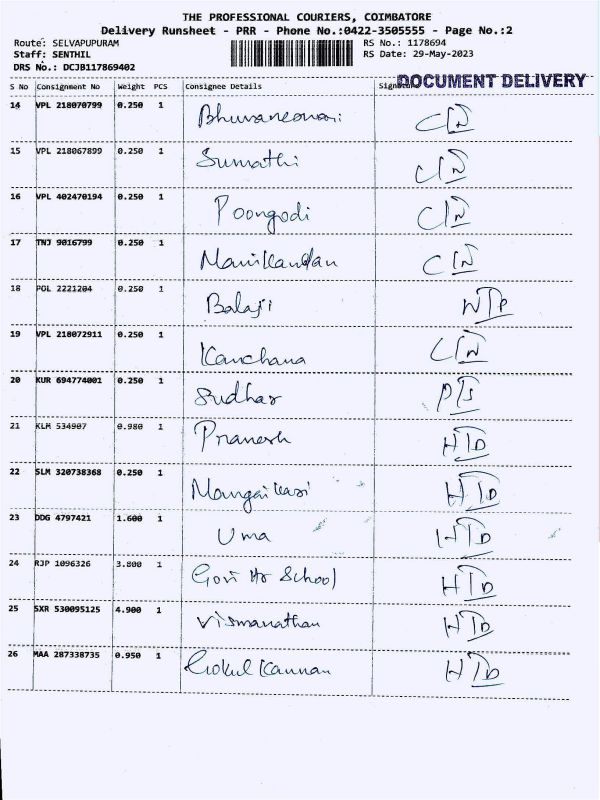 THE PROFESSIONAL COURIERS, COIMBATORE
Delivery Runsheet - PRR - Phone No.:0422-3505555 - Page No.:2
Route: SELVAPUPURAM RS No.: 1178694
Staff: SENTHIL RS Date: 29-May-2023
DRS No.: DCJB117869402
DOCUMENT DELIVERY
S No Consignment No Weight PCS Consignee Details Signature
14 VPL 218070799 0.250 1 Bhuvaneswari
15 VPL 218067899 0.250 1 Sumathi
16 VPL 402470194 0.250 1 Poongodi
17 TNJ 9016799 0.250 1 Manikandan
18 POL 2221204 0.250 1 Balaji
19 VPL 218072911 0.250 1 Kanchana
20 KUR 694774001 0.250 1 Sudhar
21 KLM 534907 0.980 1 Pranesh HTD
22 SLM 320738368 0.250 1 Mangaikasi HTD
23 DDG 4797421 1.600 1 Uma HTD
24 RJP 1096326 3.800 1 Govi Hr School HTD
25 SXR 530095125 4.900 1 Vismanathan HTD
26 MAA 287338735 0.950 1 Gokul Kannan HTD